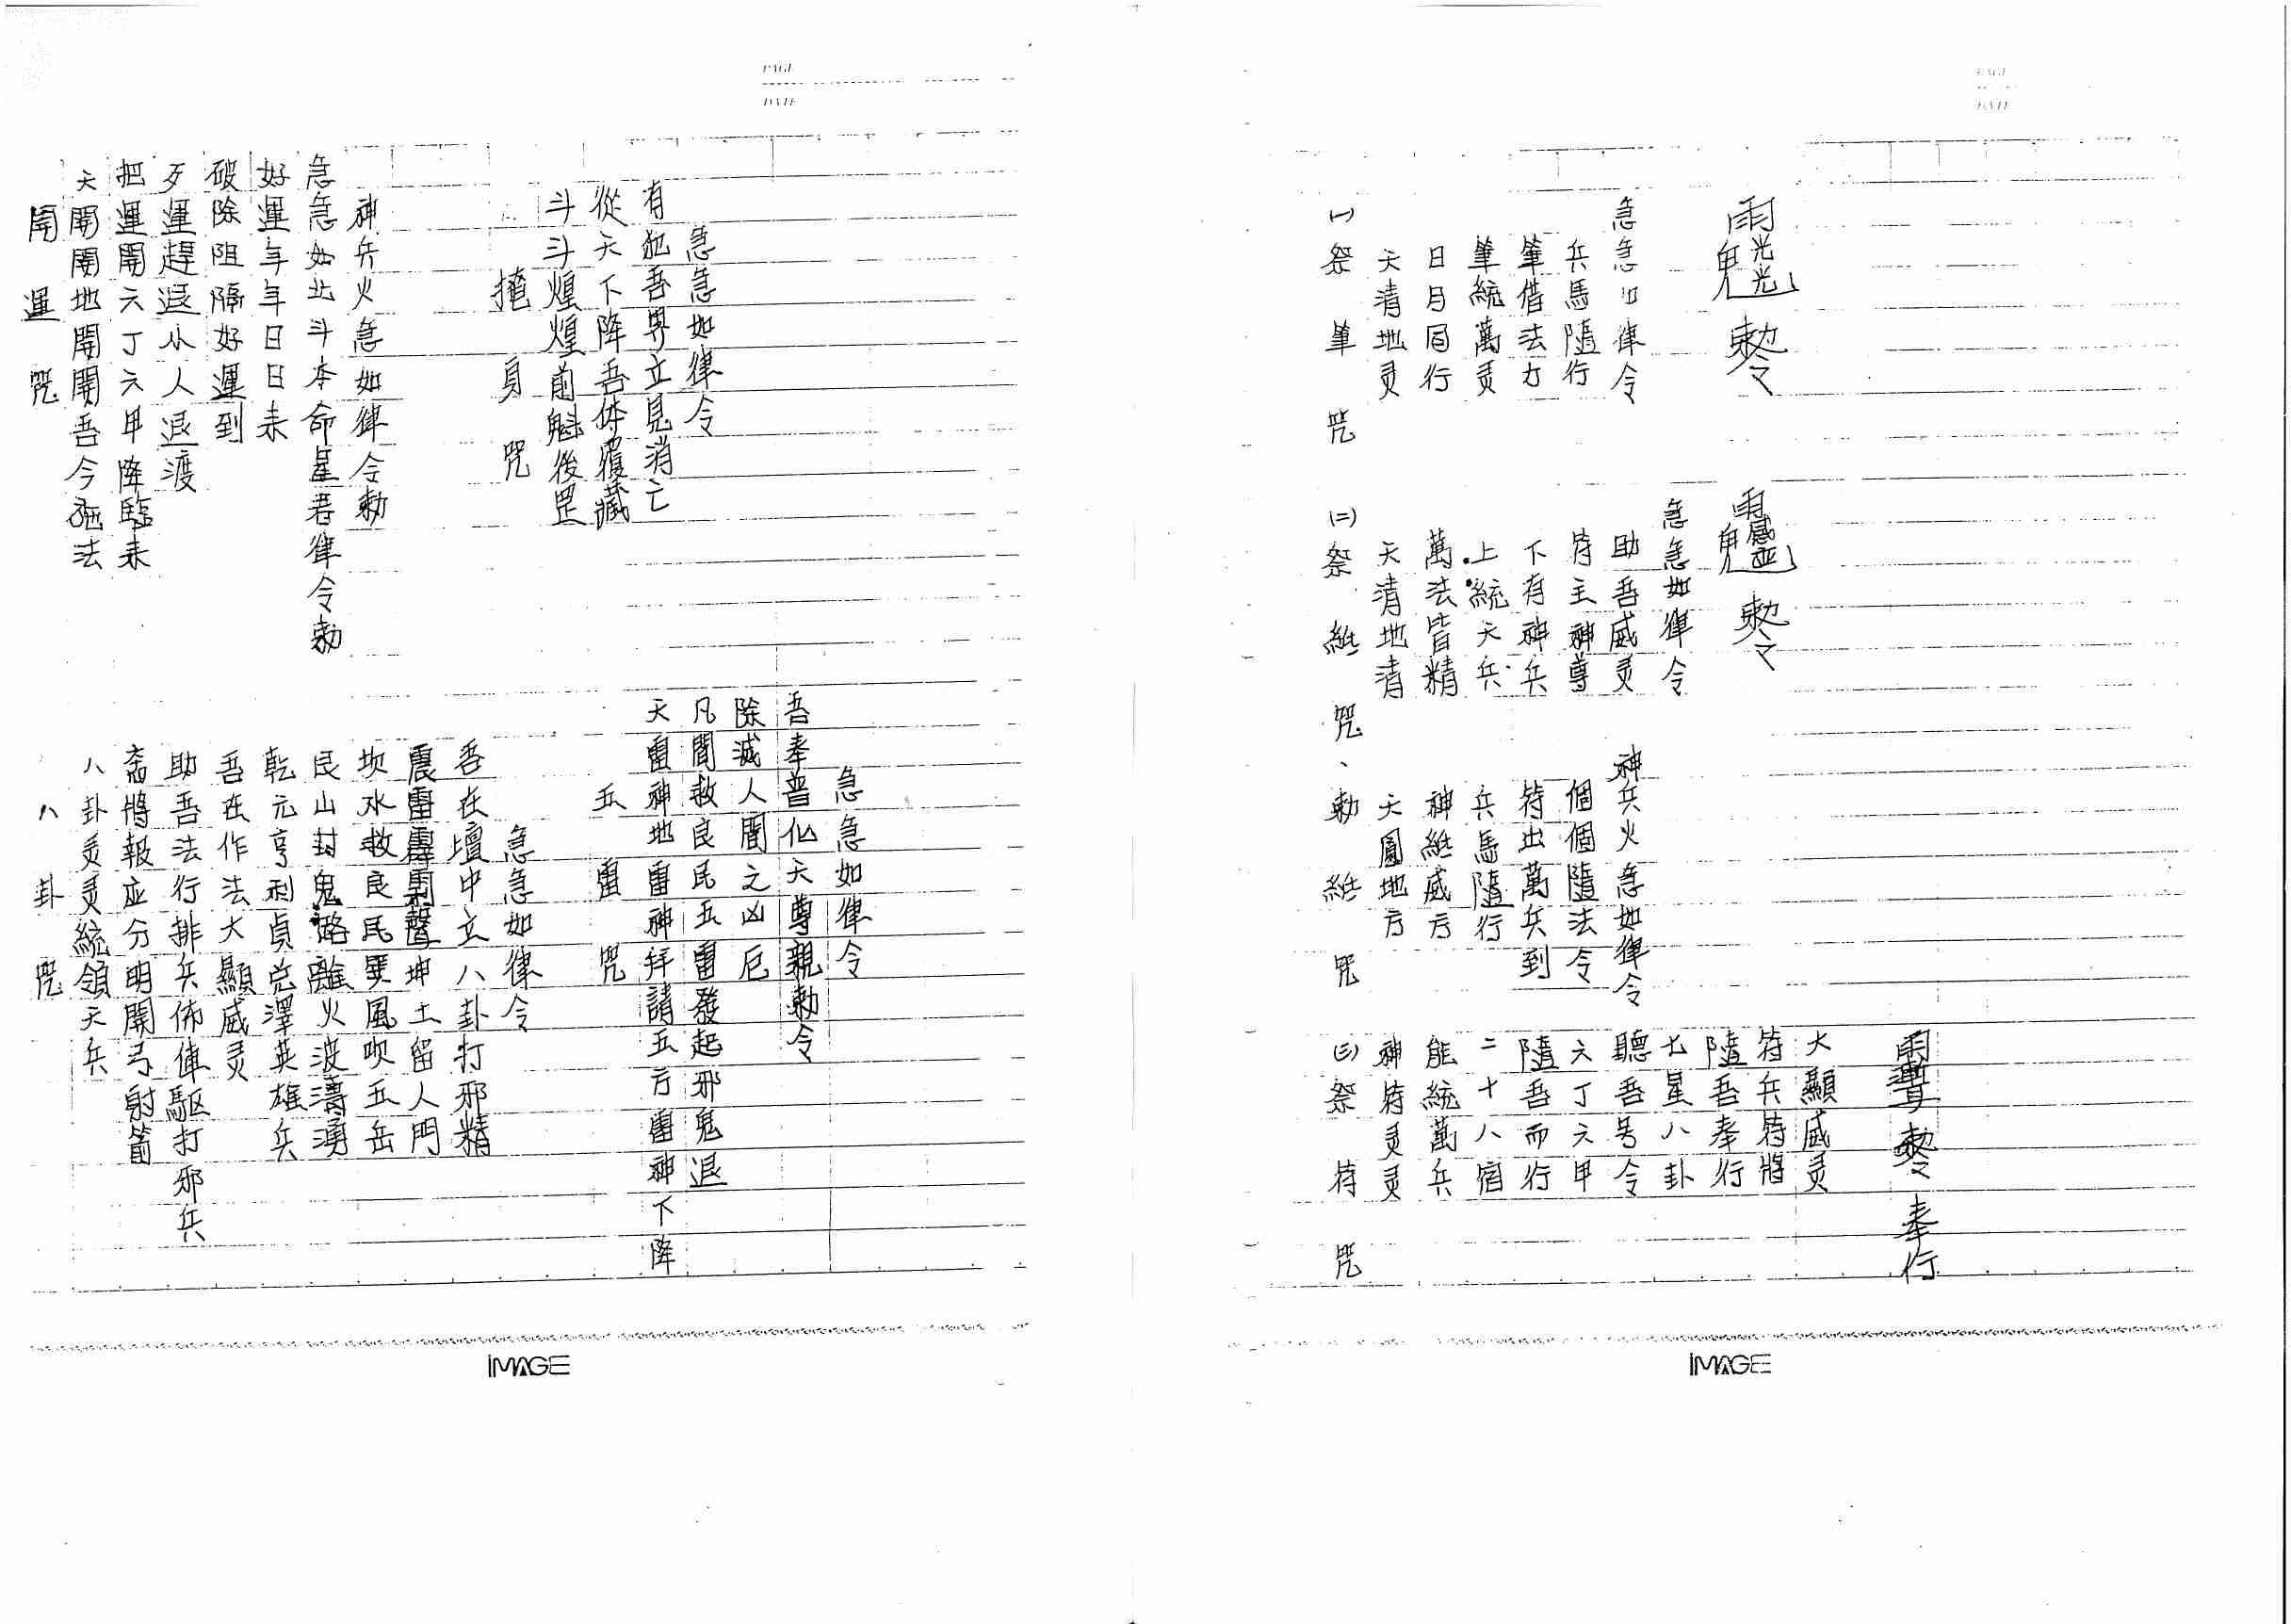 PAGE
DATE
開運咒
天開開地開開吾今施法
把運開六丁六甲降臨來
歹運趕退小人退渡
破除阻隔好運到
好運年年日日來
急急如北斗本命星君律令勅
神兵火急如律令勅
掩身咒
斗斗煌煌前魁後罡
從天下降吾体覆藏
有犯吾界立見消亡
急急如律令
八卦咒
八卦灵灵統領天兵
斋將報应分明開弓射箭
助吾法行排兵佈陣驅打邪兵
吾在作法大顯威灵
乾元亨利貞兌澤英雄兵
艮山封鬼路離火波濤湧
坎水救良民巽風吹五岳
震雷霹靂聲坤土留人門
吾在壇中立八卦打邪精
急急如律令
五雷咒
天雷神地雷神拜請五方雷神下降
凡間救良民五雷發起邪鬼退
除滅人間之凶厄
吾奉普化天尊親勅令
急急如律令
IMAGE
PAGE
DATE
(一)祭筆咒
天清地灵
日月同行
筆統萬灵
筆借法力
兵馬隨行
急急如律令
勅令
(二)祭紙咒、
天清地清
萬法皆精
上統天兵
下有神兵
符主神尊
助吾威灵
急急如律令
勅令
勅紙咒
天圓地方
神紙威方
兵馬隨行
符出萬兵到
個個隨法令
神兵火急如律令
(三)祭符咒
神符灵灵
能統萬兵
二十八宿
隨吾而行
六丁六甲
聽吾号令
七星八卦
隨吾奉行
符兵符將
大顯威灵
勅令奉行
IMAGE